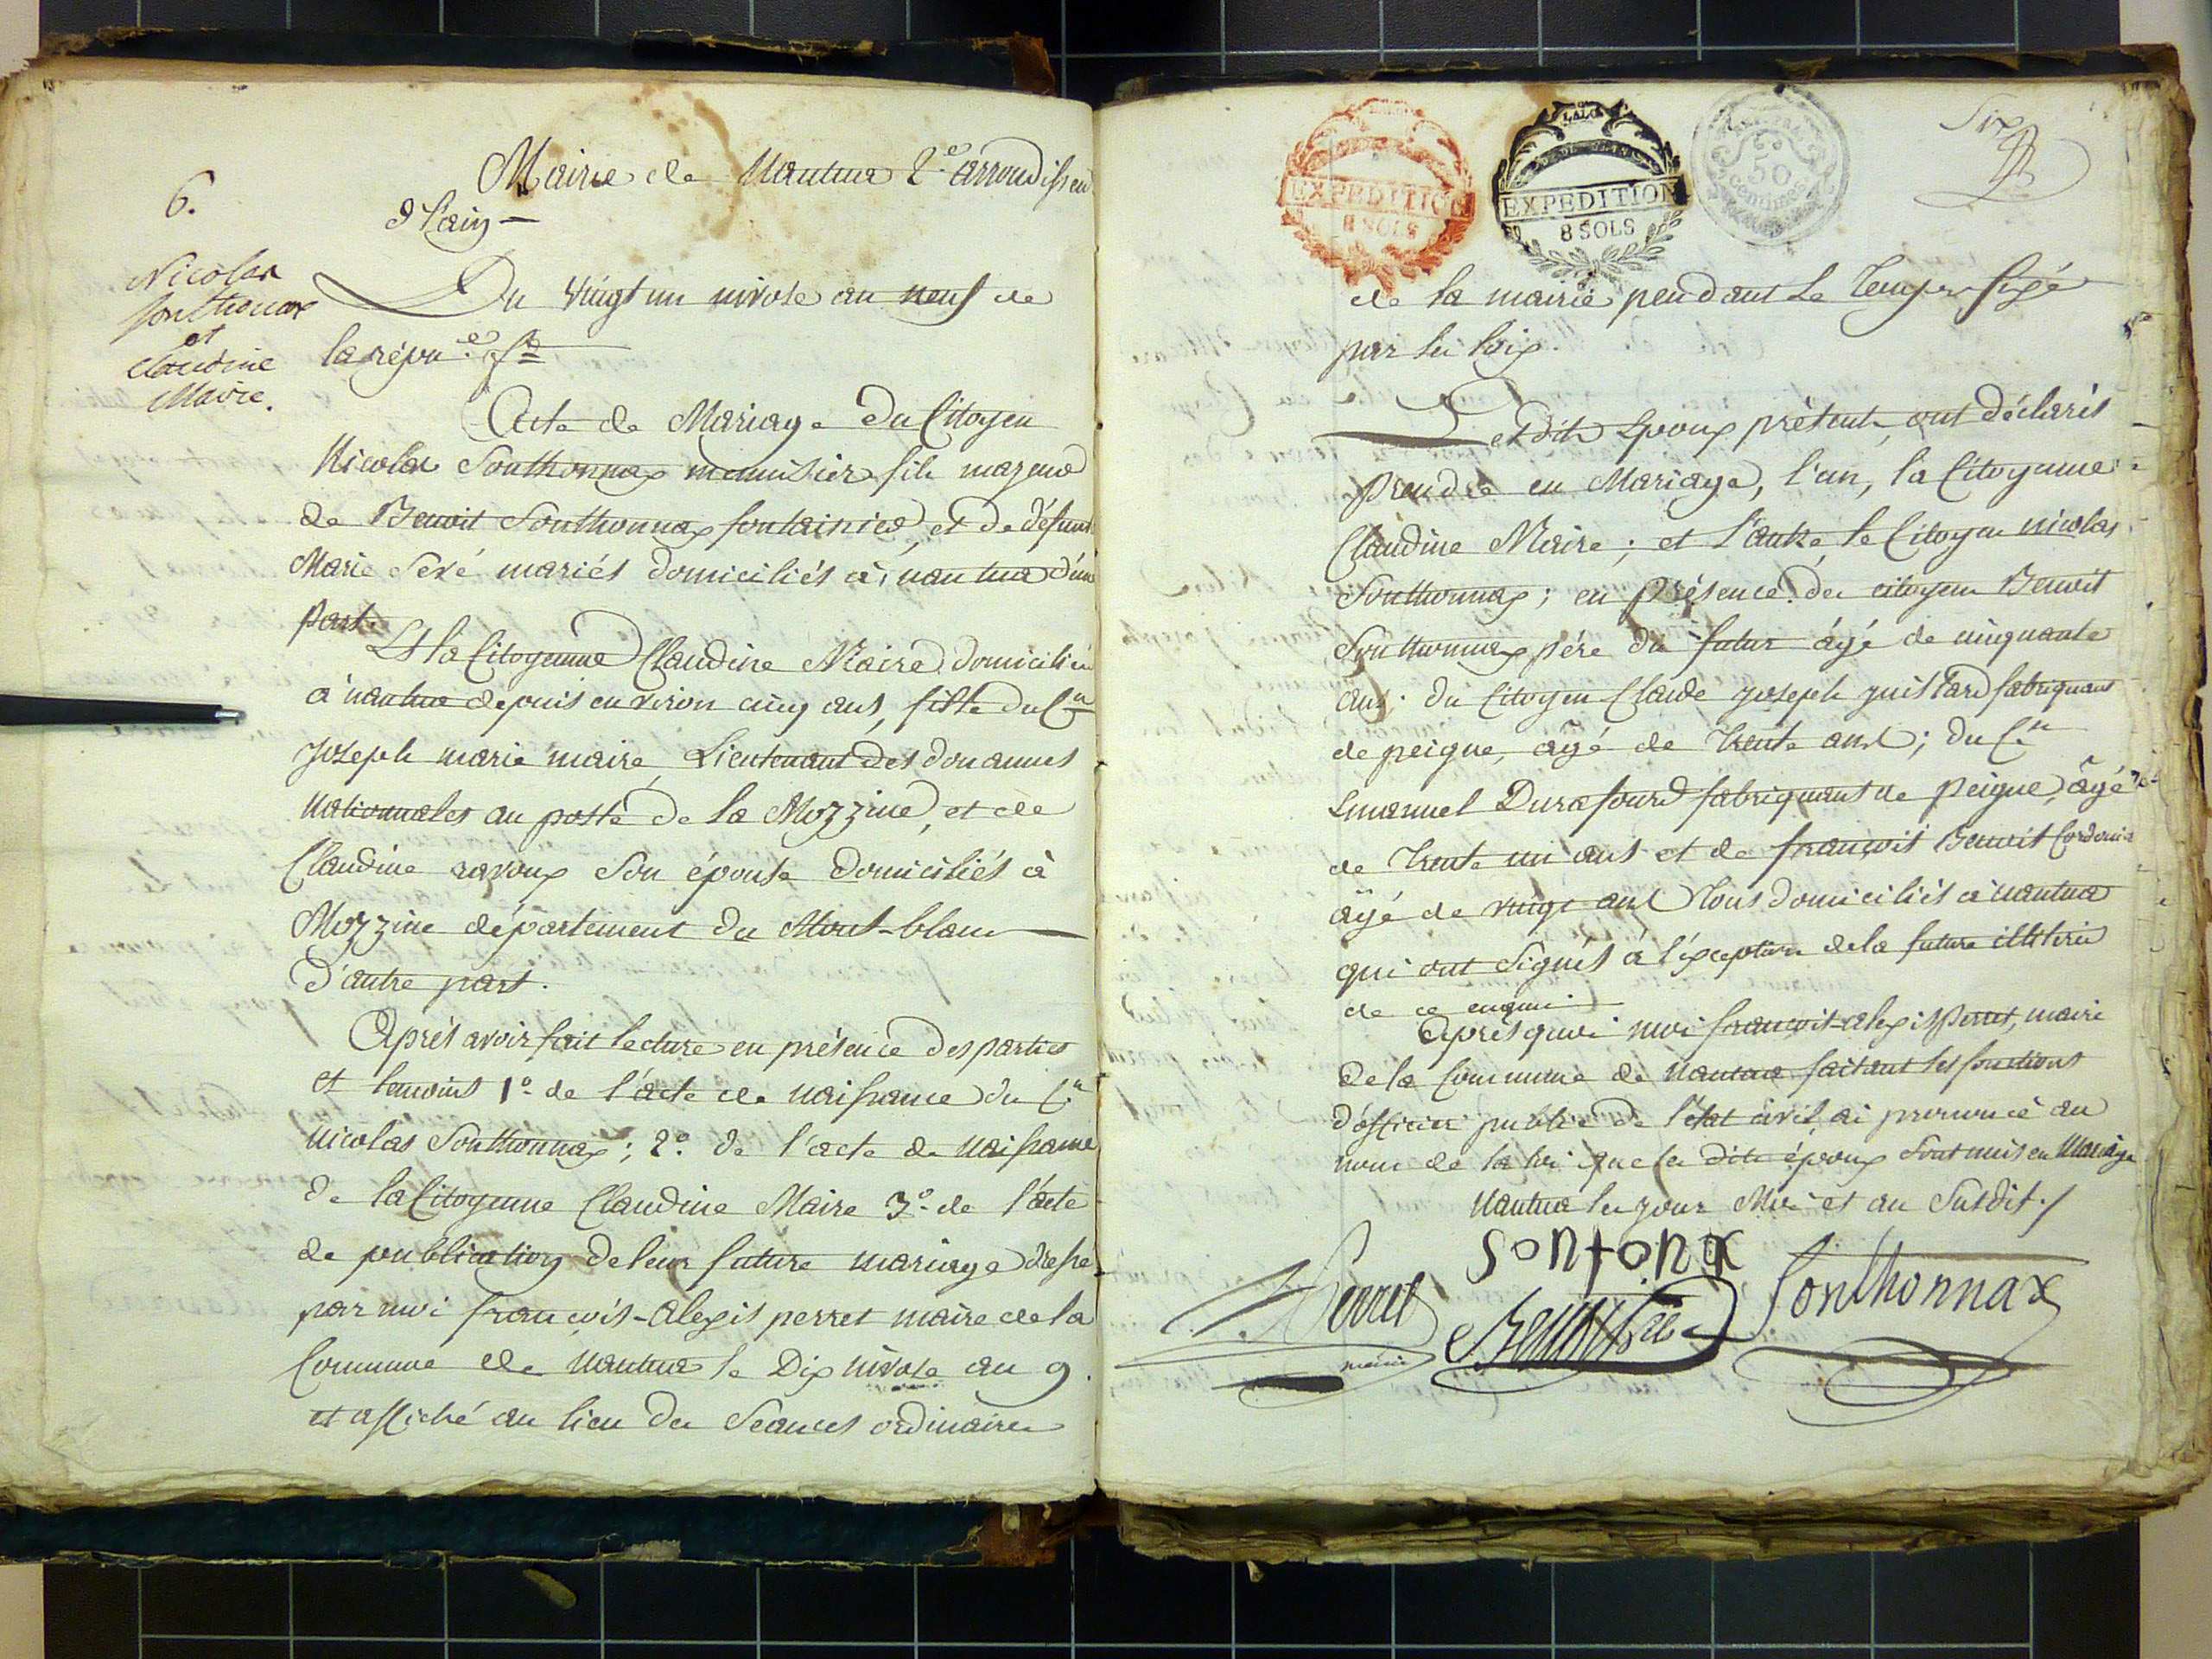 6.
Mairie de Nantua 2e. arrondissem
d l'ain —
Nicolas
Sonthonax
et
Claudine
Maire.
Du vingt un nivose an neuf de
la répu.e f.se
Acte de Mariage du Citoyen
Nicolas Sonthonnax menuisier fils mageur
de Benoit Sonthonnax fontainier, et de défunte
Marie Seré mariés domiciliés à nantua d'une
part.
Et la Citoyenne Claudine Maire domiciliée
à nantua depuis environ cinq ans, fille du C.n
Joseph marie maire, Lieutenant des douannes
Nationnales au poste de la Mozzine, et de
Claudine ravoux son épouse domiciliés à
Mozzine département du Mont-blanc
d'autre part.
Après avoir fait lecture en présence des parties
et temoins 1o. de l'acte de naissance du C.n
nicolas Sonthonnax; 2o. de l'acte de naissance
de la Citoyenne Claudine Maire 3o. de l'acte
de publication de leur future mariage dressé
par moi françois-alexis perret maire de la
Commune de Nantua le Dix nivose an 9.
et affiché au lieu des Seances ordinaires
LA LOI
EXPEDITION
8 SOLS
LA LOI
EXPEDITION
8 SOLS
50
centimes
Six
de la mairie pendant le temps fixé
par les loix.
Lesdits Epoux présents, ont déclarés
prendre en Mariage, l'un, la Citoyenne
Claudine Maire; et l'autre, le Citoyen nicolas
Sonthonnax; en présence des citoyens Benoit
Sonthonnax père du futur âgé de cinquante
ans. du Citoyen Claude Joseph juillard fabriquant
de peigne, agé de trente ans; du C.n
Emanuel Durafourd fabriquant de peigne, âgé
de trente un ans et de françois Benoit Cordonier
âgé de vingt ans tous domiciliés à nantua
qui ont signés à l'éxception de la future illitérée
de ce enquise
après quoi moi françois-alexis perret, maire
de la Commune de nantua faisant les fonctions
d'officier public de l'état civil, ai prononcé au
nom de la loi que les dits époux sont unis en Mariage
Nantua les jour Mois et an Susdit./
sontonax
Perret
maire
Benoit
Sonthonnax